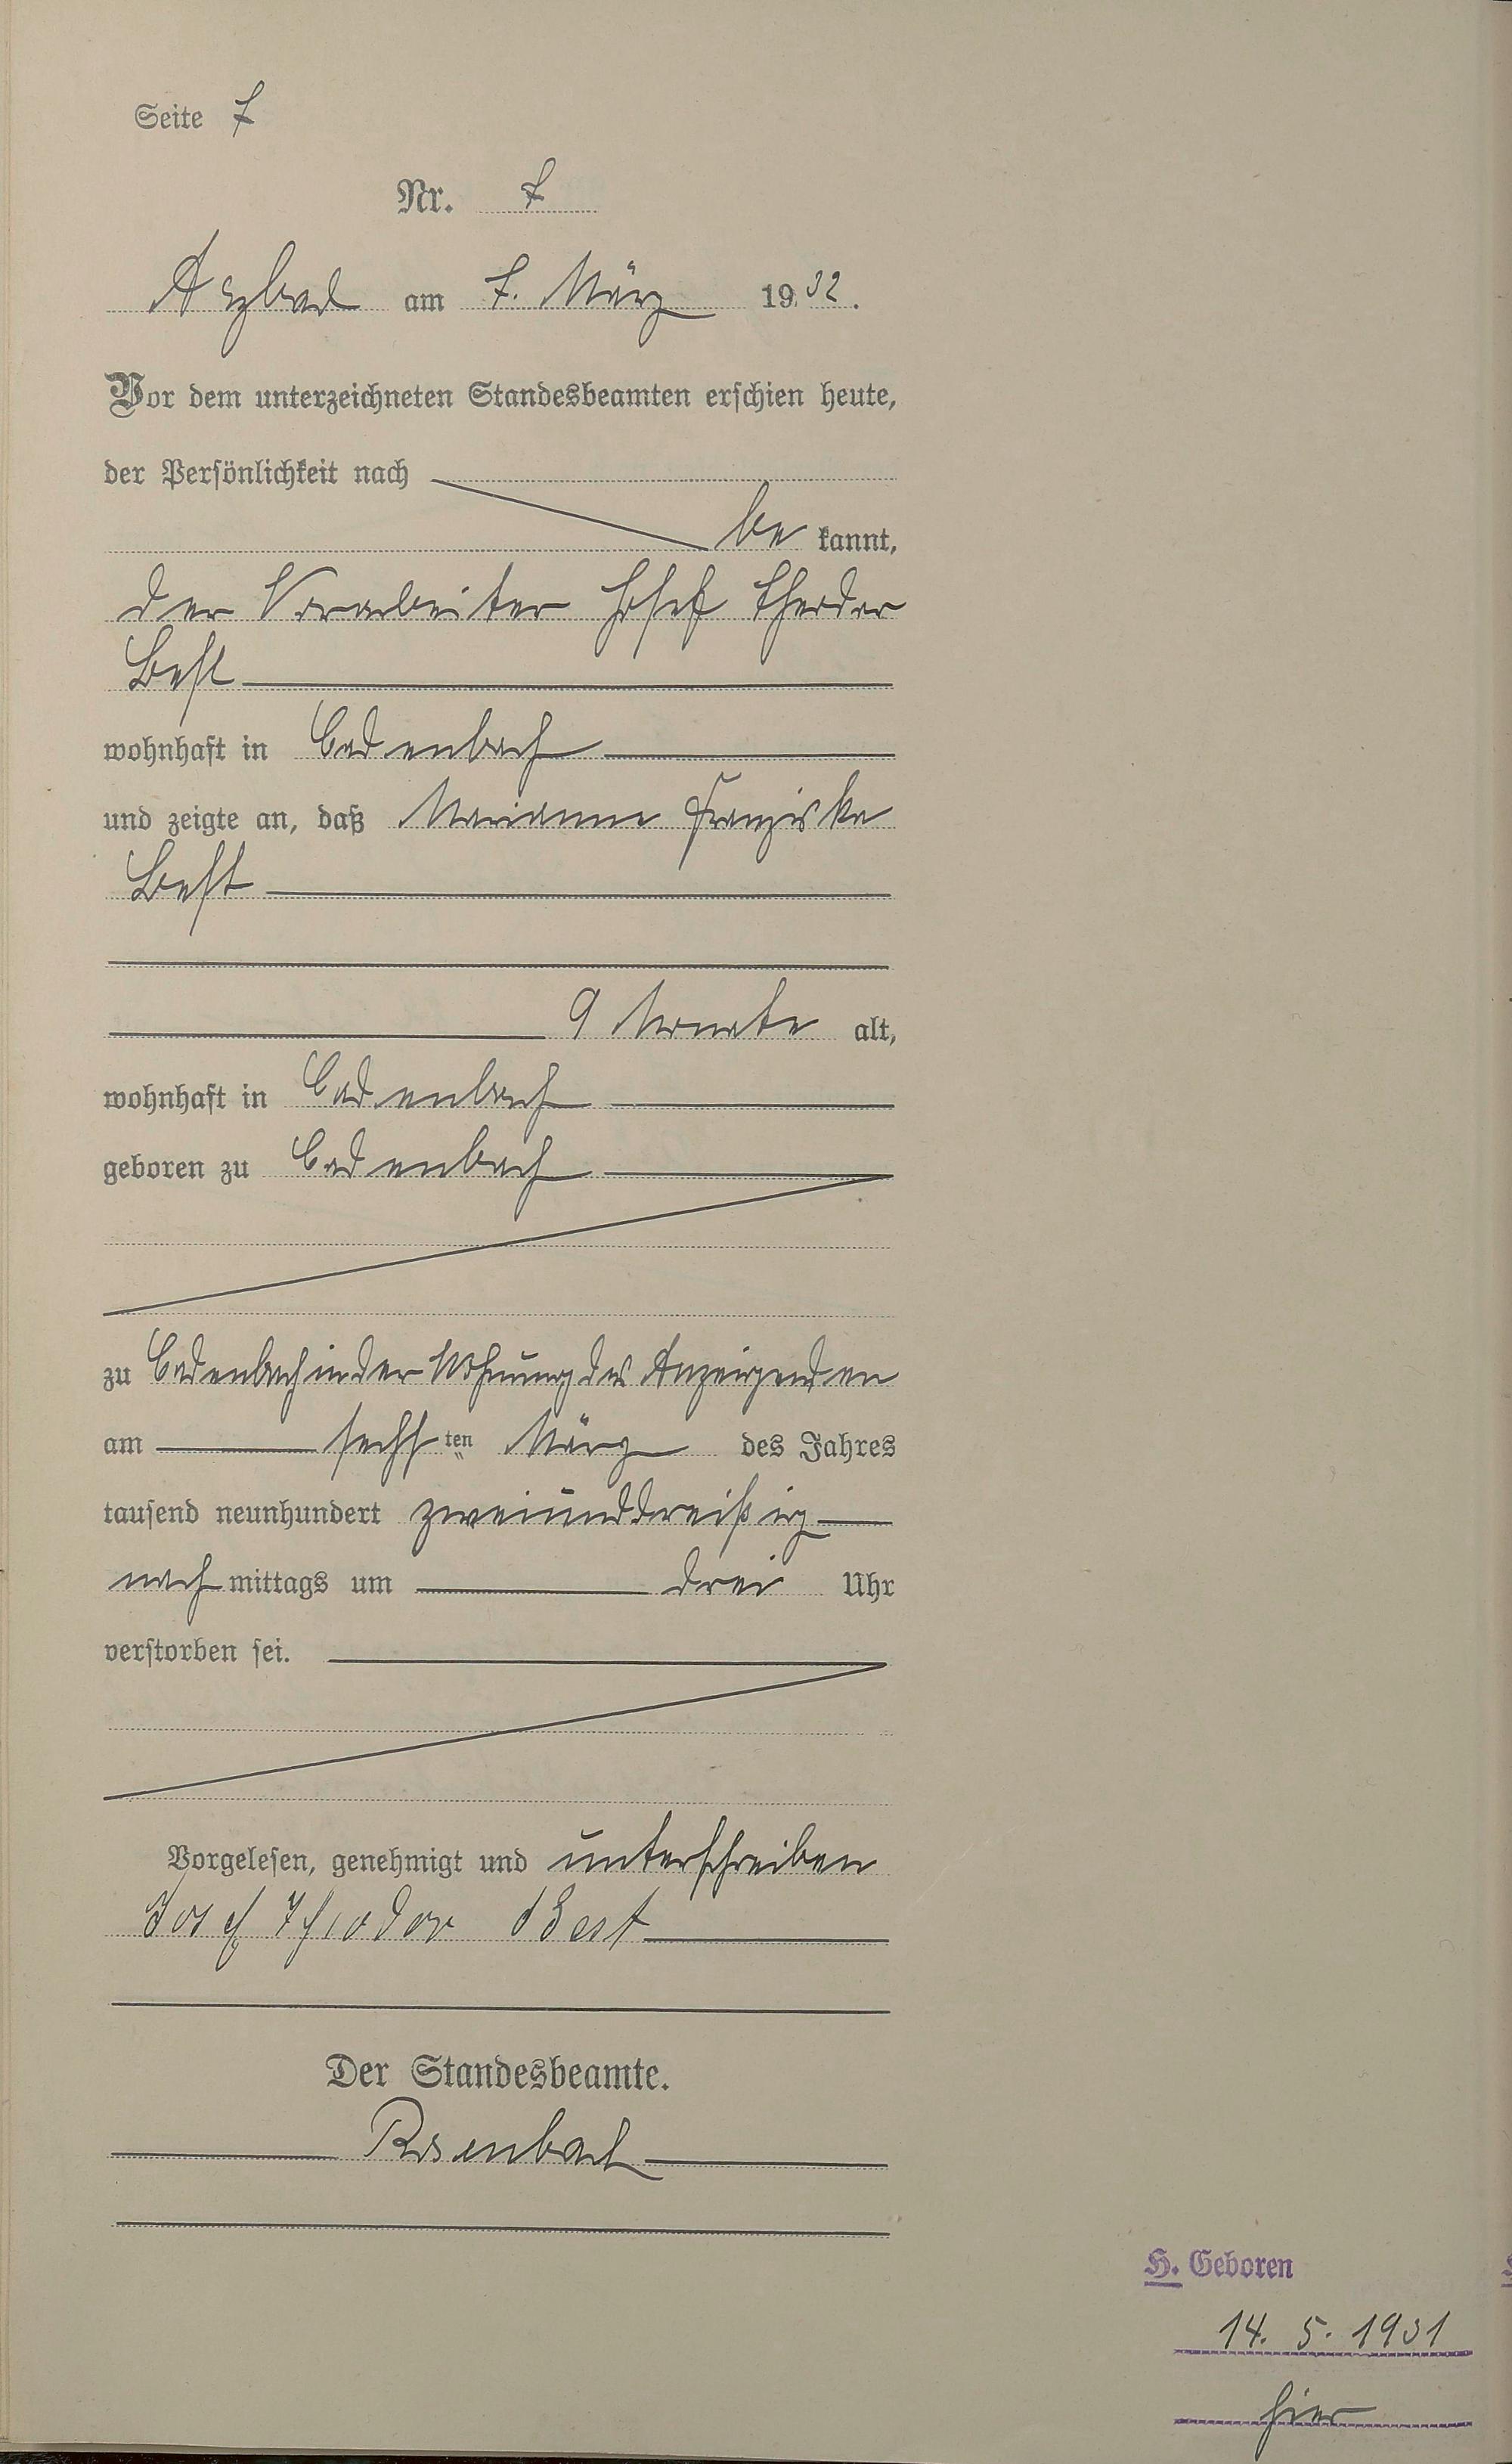 Seite 7
Nr. 7
Arzbach am 7. März 1932.
Vor dem unterzeichneten Standesbeamten erschien heute,
der Persönlichkeit nach
be kannt,
der Vorarbeiter Josef Theodor
Best
wohnhaft in Cadenbach
und zeigte an, daß Marianne Franziska
Best
9 Monate alt,
wohnhaft in Cadenbach
geboren zu Cadenbach
zu Cadenbach in der Wohnung des Anzeigenden
am sechs ten März des Jahres
tausend neunhundert zweiunddreißig
nach mittags um drei Uhr
verstorben sei.
Vorgelesen, genehmigt und unterschrieben
Josef Theodor Best
Der Standesbeamte.
Rosenbach
H. Geboren
14. 5. 1931
hier